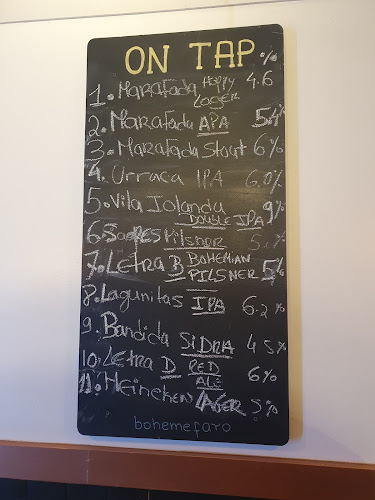 ON TAP %
1. Marafada Hoppy 4.6
Lager
2. Marafada APA 5.4%
3. Marafada Stout 6%
4. Urraca IPA 6.0%
5. Vila Jolanda 9%
DOUBLE IPA
6. Sagres Pilsner
7. Letra B BOHEMIAN 5%
PILSNER
8. Lagunitas IPA 6.2%
9. Bandida SIDRA 4.5%
10. Letra D RED 6%
ALE
11. Heineken LAGER 5%
bohemefaro